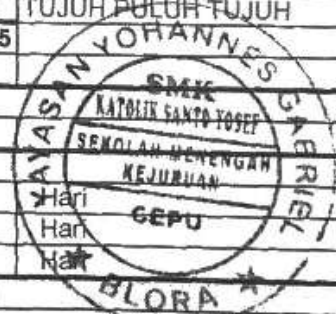 TUJUH PULUH TUJUH
5
YAYASAN YOHANNES GABRIEL
SMK
KATOLIK SANTO YOSEF
SEKOLAH MENENGAH
KEJURUAN
CEPU
BLORA
Hari
Hari
Hari